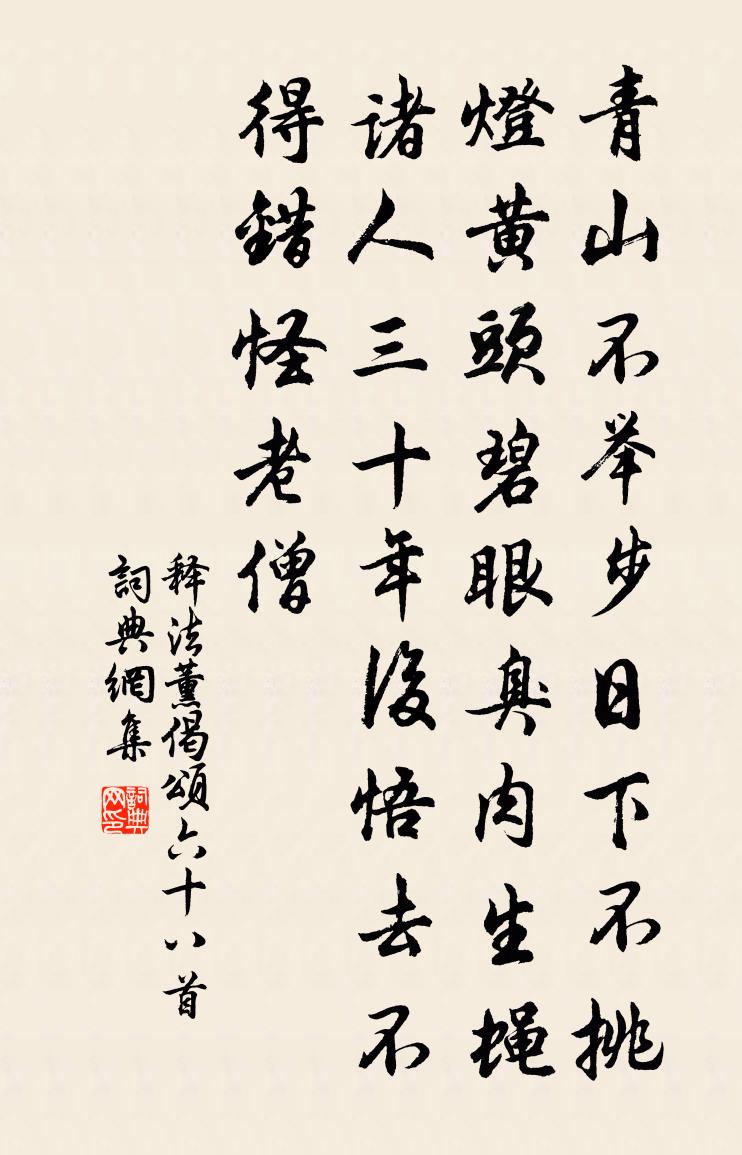 青山不举步日下不挑
燈黄頭碧眼臭肉生蝇
诸人三十年後悟去不
得錯怪老僧
释法薰偈頌六十八首
詞典網集
詞典网印